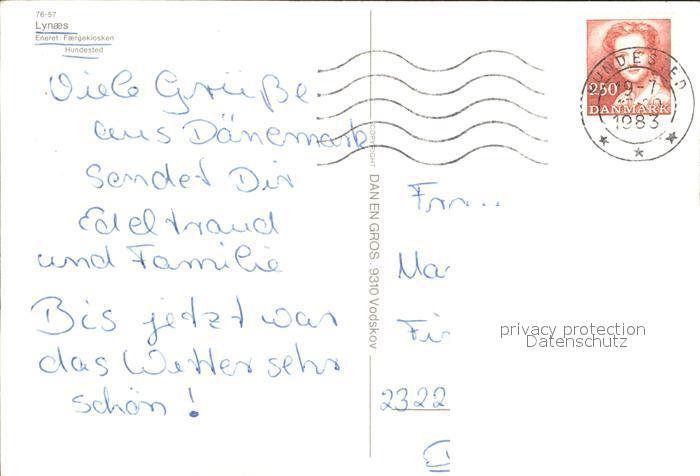 76-57
Lynæs
Eneret: Færgekiosken
Hundested
Viele Grüße
aus Dänemark
sendet Dir
Edeltraud
und Familie
Bis jetzt war
das Wetter sehr
schön!
COPYRIGHT DAN EN GROS . 9310 Vodskov
HUNDESTED
19-7
1983
250
DANMARK
Frau
Ma
Fi
2322
privacy protection
Datenschutz